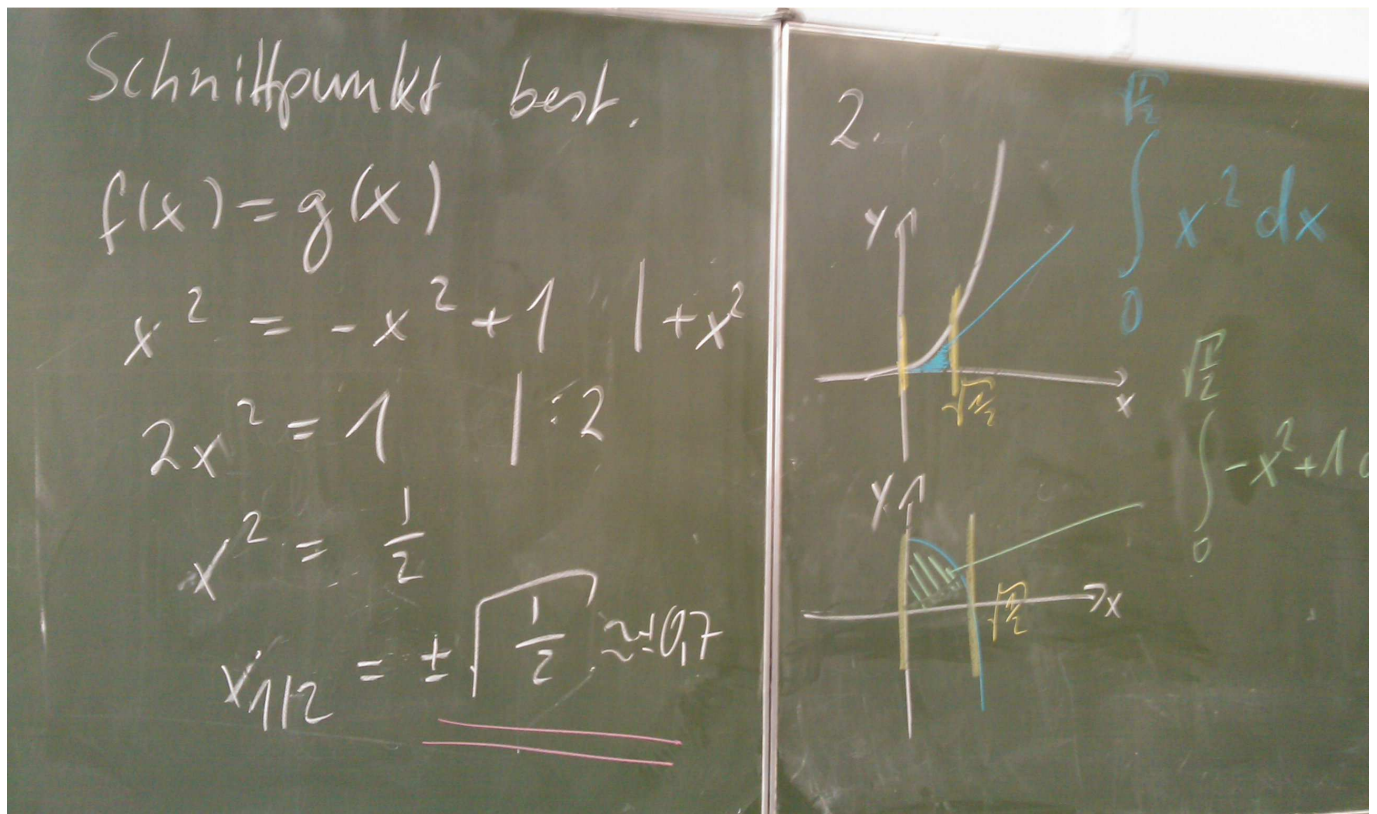 Schnittpunkt best.
f(x) = g(x)
x² = -x² + 1 | +x²
2x² = 1 | :2
x² = 1/2
x₁/₂ = ±√(1/2) ≈ ±0,7
2.
√(1/2)
∫ x² dx
0
y
x
√(1/2)
√(1/2)
∫ -x² + 1
0
y
x
√(1/2)